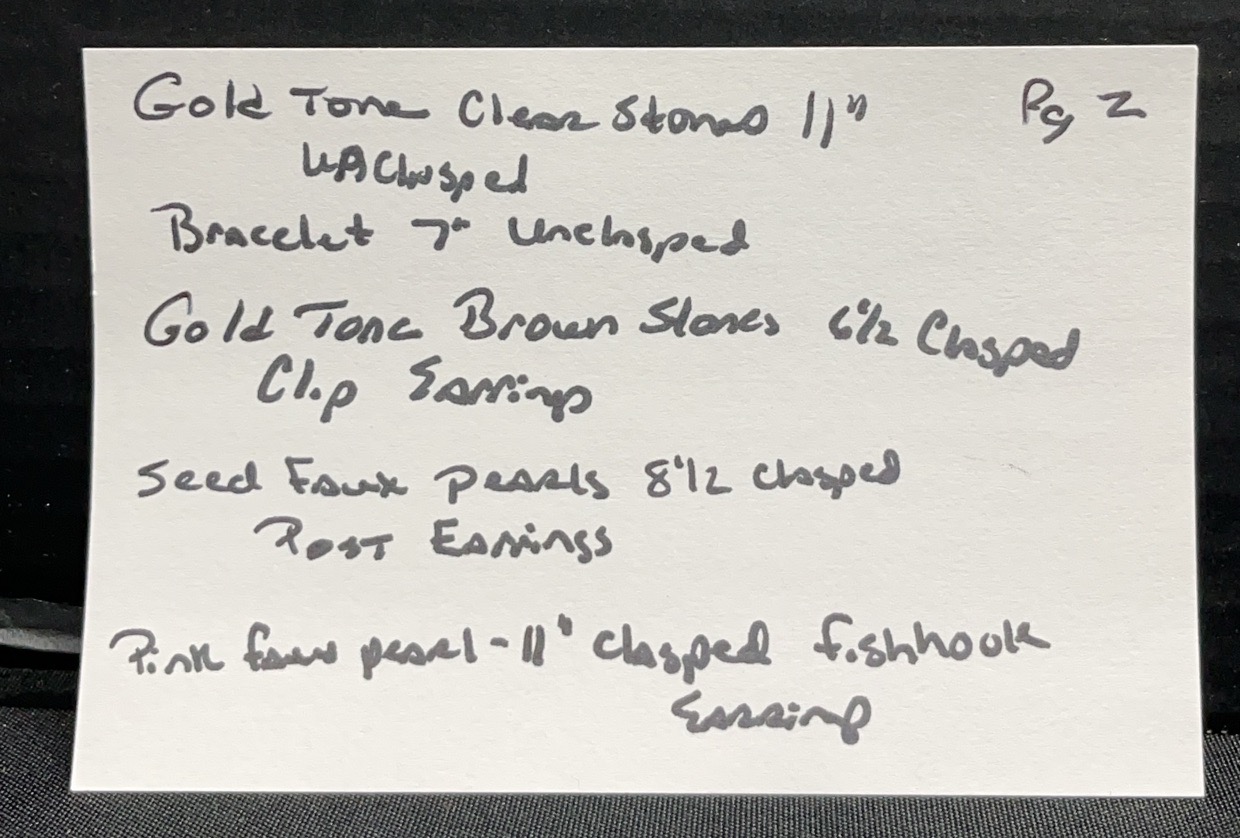 Gold Tone Clear Stones 11" Pg 2
UnClasped
Bracelet 7" Unclasped
Gold Tone Brown Stones 6 1/2 Clasped
Clip Earrings
Seed Faux pearls 8 1/2 clasped
Post Earrings
Pink faux pearl - 11" clasped fishhook
Earring